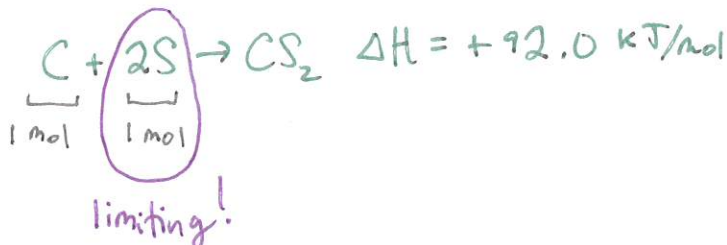 C + 2S → CS₂ ΔH = +92.0 kJ/mol
1 mol 1 mol
limiting!